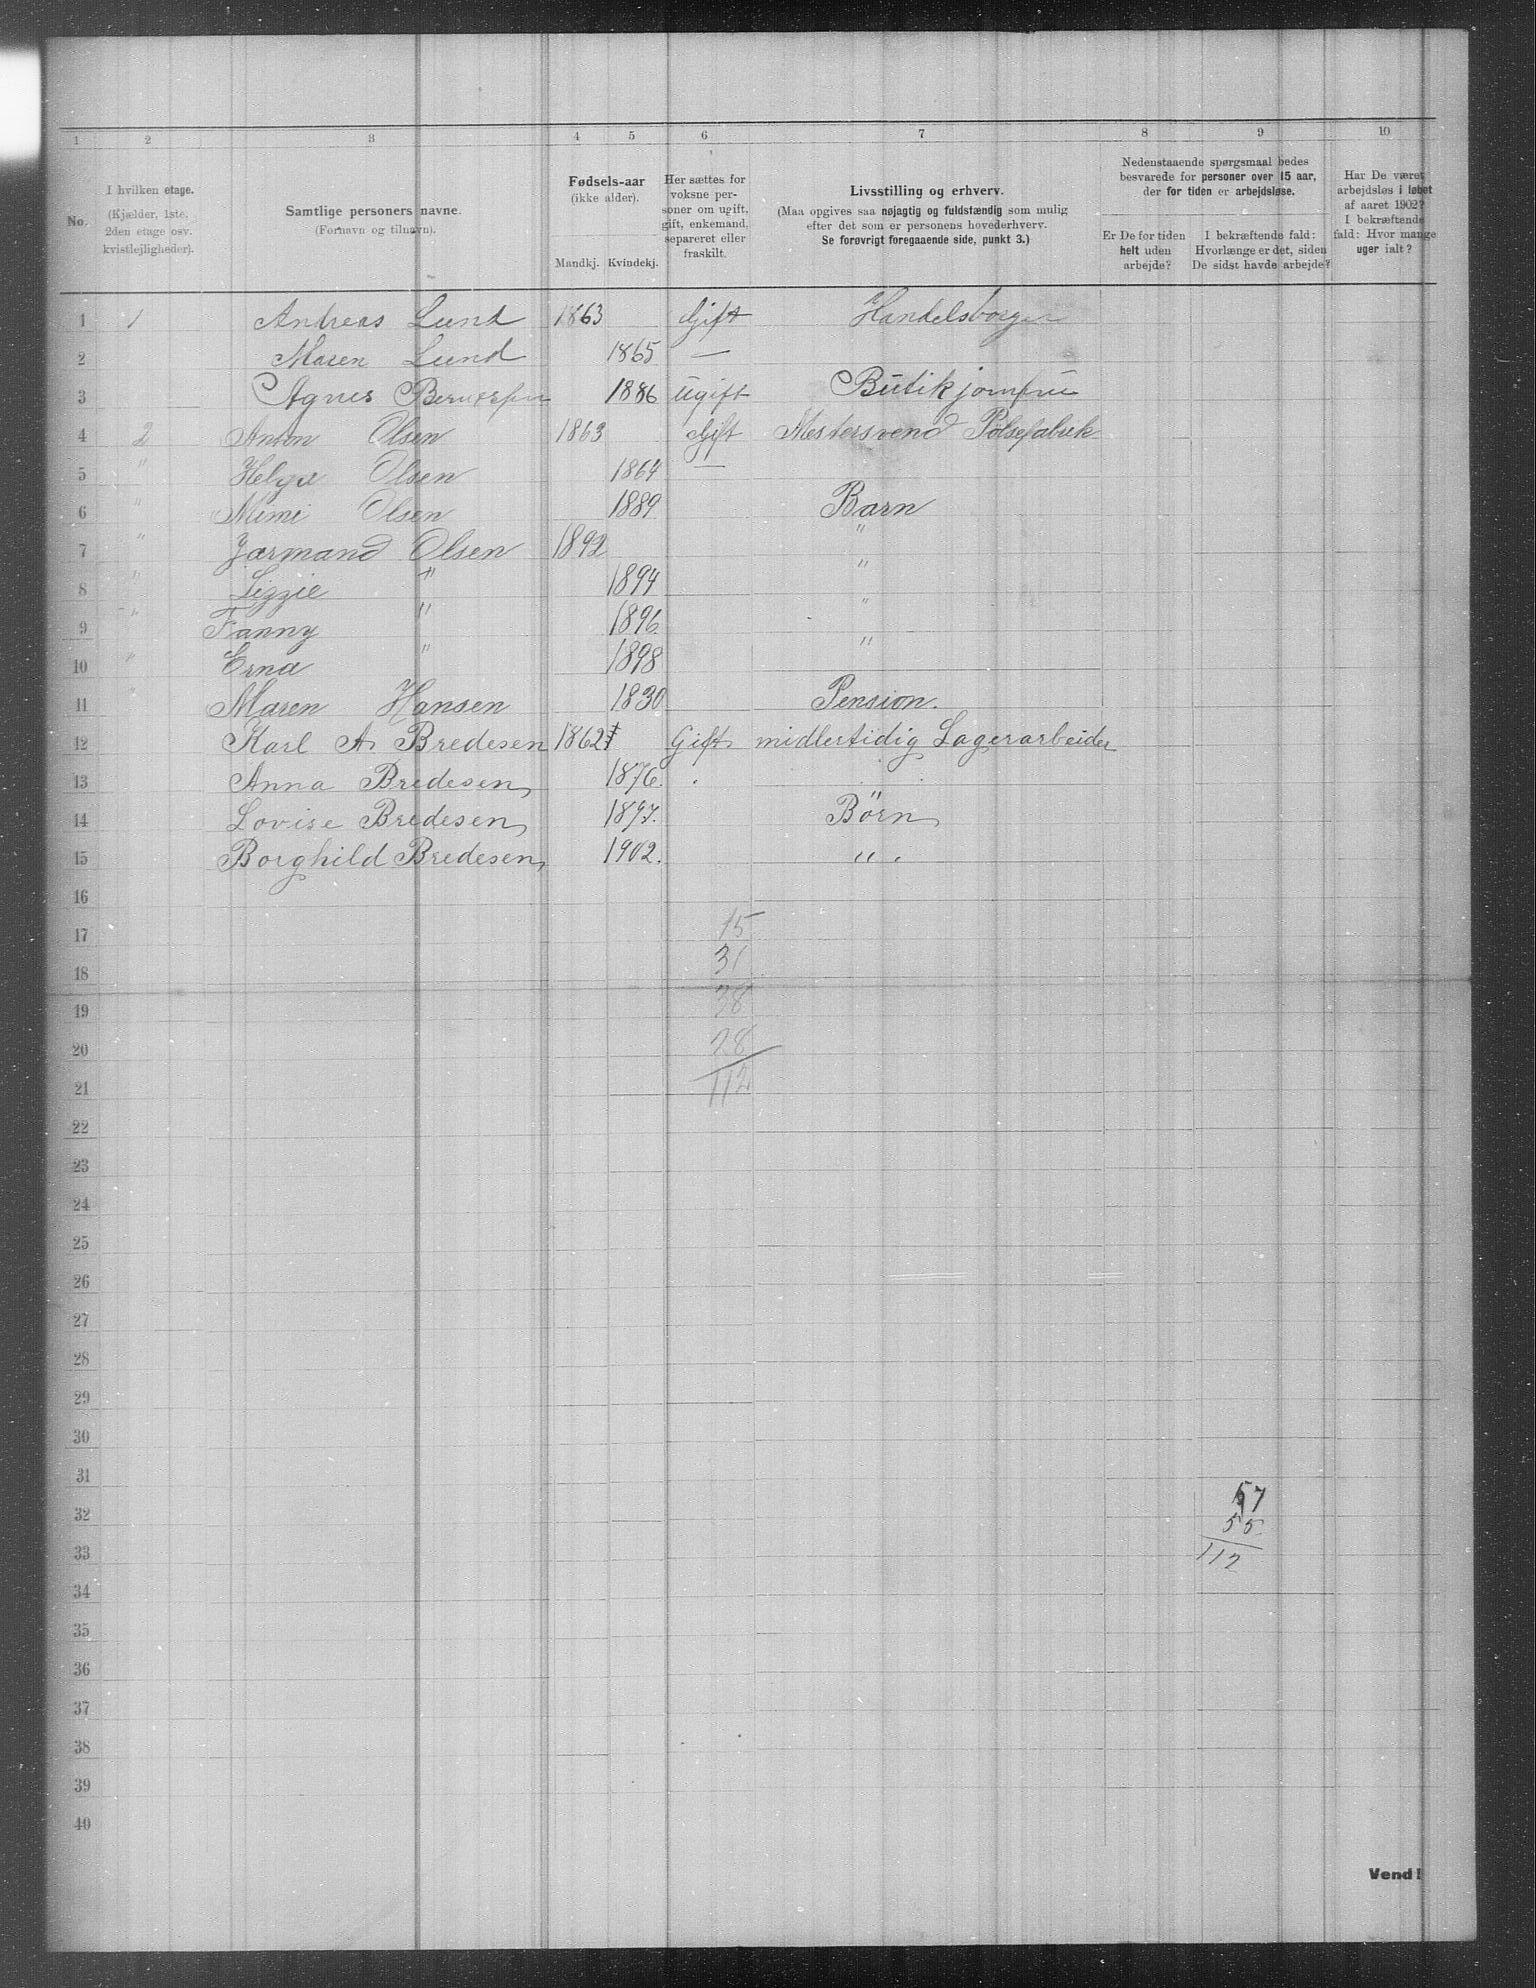 1 2 3 4 5 6 7 8 9 10
No.
I hvilken etage.
(Kjælder, 1ste,
2den etage osv.
kvistlejligheder).
Samtlige personers navne.
(Fornavn og tilnavn).
Fødsels-aar
(ikke alder).
Mandkj. Kvindekj.
Her sættes for
voksne per-
soner om ugift,
gift, enkemand,
separeret eller
fraskilt.
Livsstilling og erhverv.
(Maa opgives saa nøjagtig og fuldstændig som mulig
efter det som er personens hovederhverv.
Se forøvrigt foregaaende side, punkt 3.)
Nedenstaaende spørgsmaal bedes
besvarede for personer over 15 aar,
der for tiden er arbejdsløse.
Er De for tiden
helt uden
arbejde?
I bekræftende fald:
Hvorlænge er det, siden
De sidst havde arbejde?
Har De været
arbejdsløs i løbet
af aaret 1902?
I bekræftende
fald: Hvor mange
uger ialt?
1 1 Andreas Lund 1863 Gift Handelsborger
2 Maren Lund 1865 —
3 Agnes 1886 ugift Butikjomfru
4 2 Anton Olsen 1863 Gift Mestersvend Pølsefabrik
5 " Helga Olsen 1864 —
6 " Mimi Olsen 1889 Barn
7 " Jarmand Olsen 1892 "
8 " Lizzie " 1894 "
9 " Fanny " 1896 "
10 " Erna " 1898 "
11 " Maren Hansen 1830 Pension.
12 Karl A. Bredesen 1862 Gift midlertidig Lagerarbeider
13 Anna Bredesen, 1876. .
14 Lovise Bredesen, 1897. Börn,
15 Borghild Bredesen, 1902. " .
16
17 15
18 31
19 38
20 28
21 112
22
23
24
25
26
27
28
29
30
31
32 57
33 55
112
34
35
36
37
38
39
40
Vend!